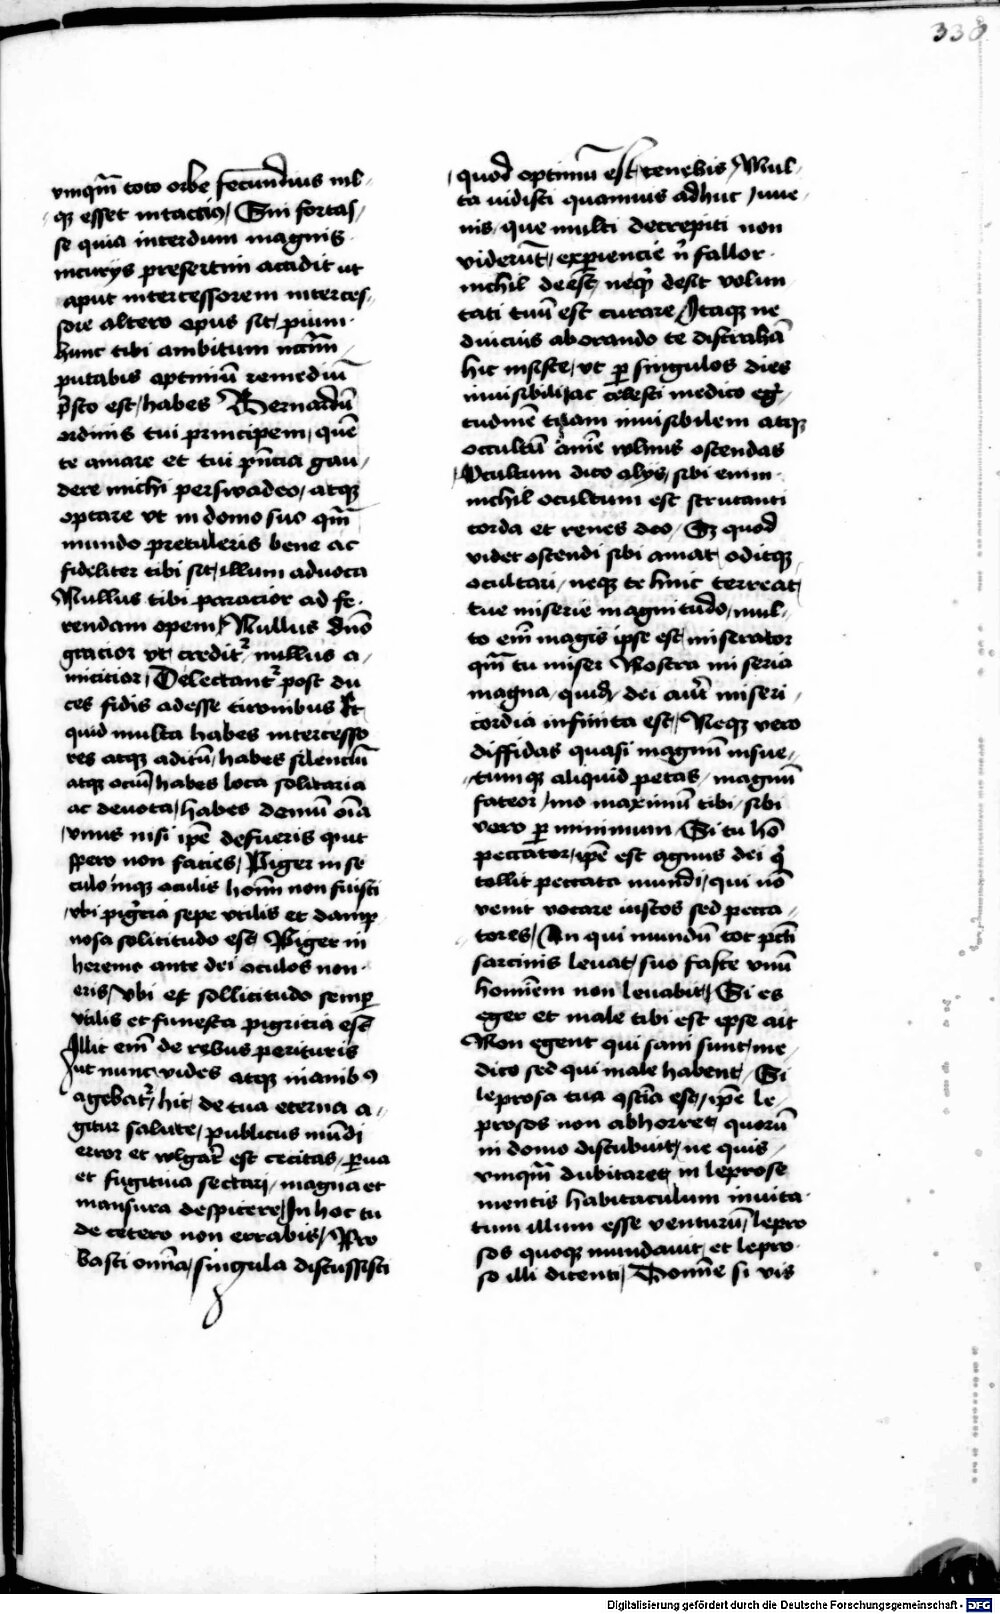 338
vmq̃m toto orbe fecundius nil-
qꝫ esset intactiꝰ / Sin fortas/
se quia interdum magnis
incurijs presertim accidit ut
aput intercessorem interces-
sore altero opus sit / pium
hunc tibi ambitum
putabis optimũ remediũ
p̃sto est / habes Bernardũ
ordinis tui principem / quẽ
te amare et tui pñcia gau/
dere michi perswadeo / atqꝫ
optare vt in domo suo qm̃
mundo pretuleris bene ac
fideliter tibi sit / illum aduoca
Nullus tibi paracior ad fe-
rendam opem / Nullus dño
gracior vt creditʳ / nullus a/
micitior / Delectantʳ post du
ces fidis adesse tironibus Et
quid multa habes intercesso
res atqꝫ aditũ / habes silenciũ
atqꝫ ociũ / habes loca solitaria
ac deuota / habes demũ oĩa
vnus nisi ip̃e defueris qđ ut
spero non facies / Piger in se
culo inqꝫ oculis hoĩm non fuisti
vbi pigricia sepe vtilis et damp
nosa solicitudo est / Piger in
heremo ante dei oculos non
eris / vbi et sollicitudo semꝑ
vtilis et funesta pigritia est
Illic em̃ de rebus perituris
ut nunc vides atqꝫ inanibꝰ
agebatʳ / hic de tua eterna a/
gitur salute / publicus mũdi
error et wlgar̃ est cecitas / ꝑua
et fugitiua sectari / magna et
mansura despicere / In hoc tu
de cetero non errabis / Pro
basti om̃ia / singula discussisti
quod optimũ est / tenebis / Mul-
ta uidisti quamuis adhuc iuue-
nis / que multi decrepiti non
viderũt / exꝑiencie ñ fallor
nichil deest / neqꝫ desit volun
tati tuũ est curare / Itaqꝫ ne
diuicius ab orando te distrahã
hic insiste / vt ꝑ singulos dies
inuisibili ac celesti medico eg̃/
tudinẽ tuam inuisibilem atqꝫ
occultũ aĩe wlnus ostendas
Ocultum dico alijs / sibi enim
nichil ocultum est scrutanti
corda et renes deo / Sꝫ quod
videt ostendi sibi amat / oditqꝫ
ocultari / neqꝫ te hinc terreat
tue miserie magnitudo / mul-
to em̃ magis ipse est miserator
qm̃ tu miser Nostra miseria
magna / quidẽ / dei aut̃ miseri
cordia infinita est / Neqꝫ vero
diffidas quasi magnũ insue-
tumqꝫ aliquid petas / magnũ
fateor / imo maximũ tibi / sibi
vero ꝑminimum / Si tu hõ
peccator / ip̃e est agnus dei q̃
tollit peccata mundi / qui nõ
venit vocare iustos sed pecca-
tores / An qui mundũ tot pctĩ
sarcinis leuat / suo fasce vnũ
homĩem non leuabit / Si es
eger et male tibi est ipse ait
Non egent qui sani sunt me-
dico sed qui male habent / Si
leprosa tua ꝯscĩa est / ip̃e le-
prosos non abhorret quorũ
in domo discubuit / ne quis
vmq̃m dubitaret in leprose
mentis habitaculum inuita
tum illum esse venturũ / lepro
sos quoqꝫ mundauit / et lepro
so illi dicenti / Domĩe si vis
Digitalisierung gefördert durch die Deutsche Forschungsgemeinschaft - DFG